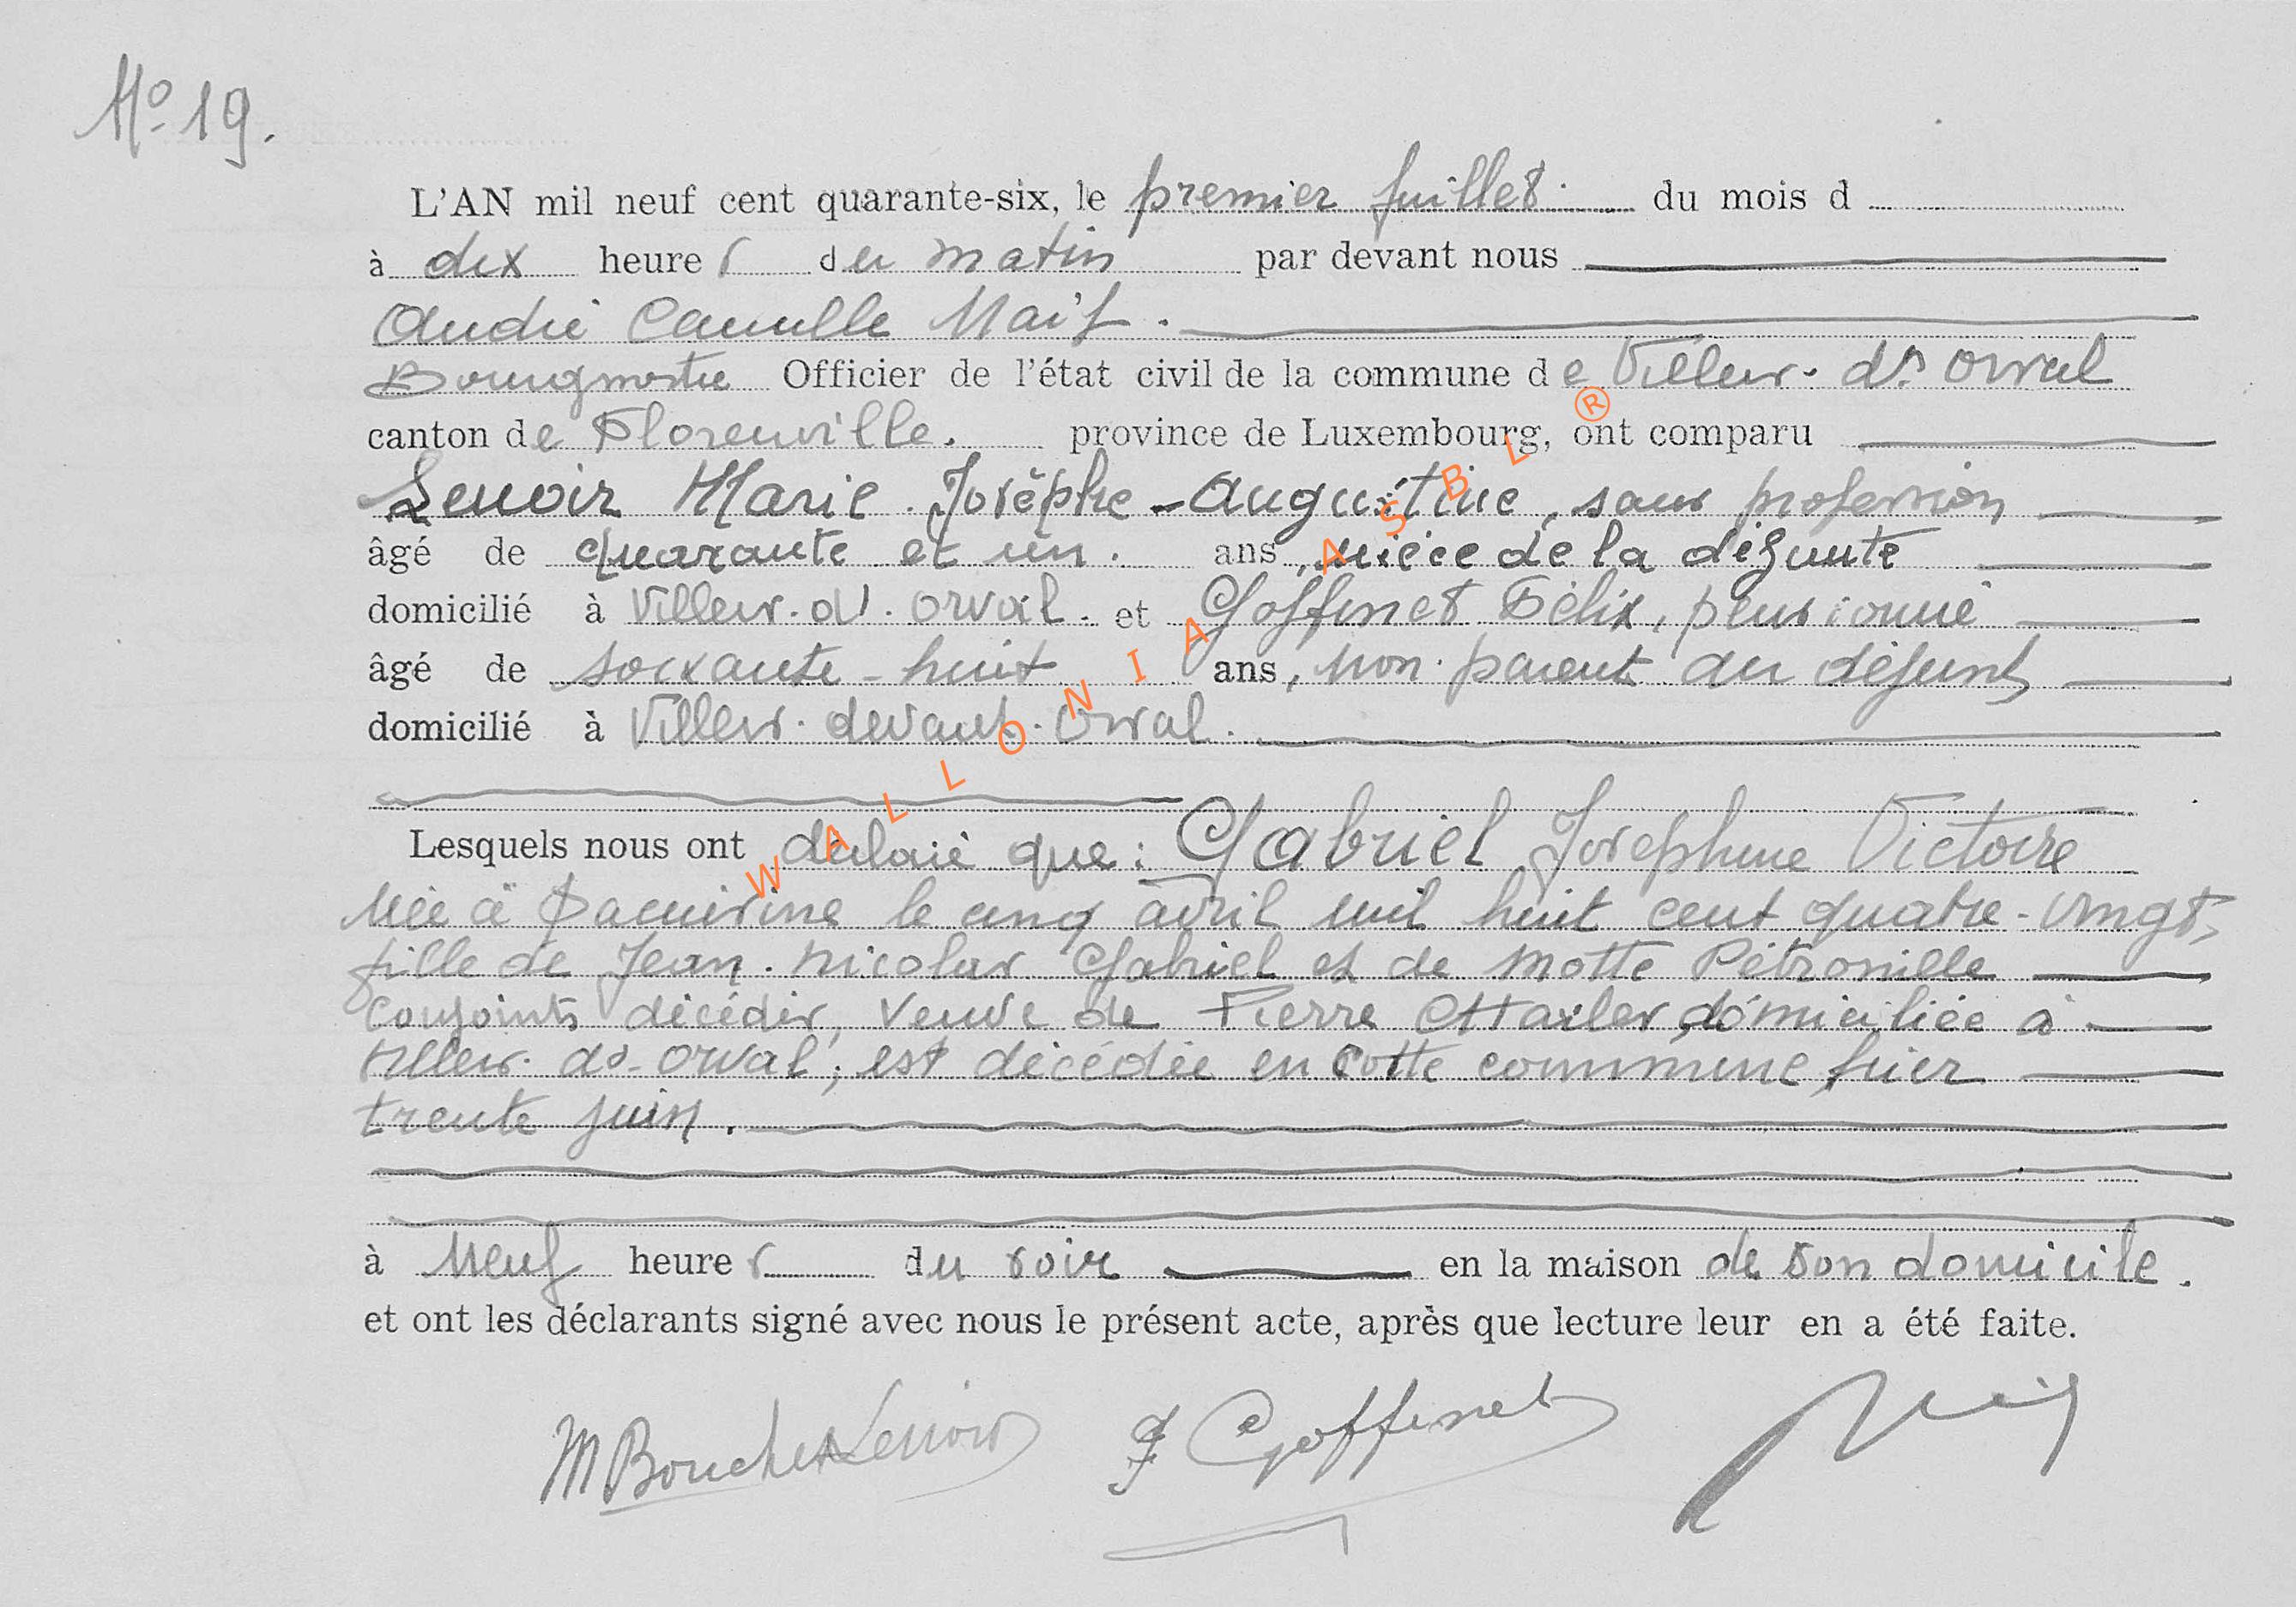 No 19.
L'AN mil neuf cent quarante-six, le premier juillet. du mois d
à dix heures du matin par devant nous
André Camille Naif.
Bourgmestre Officier de l'état civil de la commune de Villers-dt Orval
canton de Florenville. province de Luxembourg, ont comparu
Lenoir Marie-Josèphe-Augustine, sans profession
âgé de quarante et un. ans, nièce de la défunte
domicilié à Villers-dt-Orval. et Goffinet Félix, pensionné
âgé de soixante-huit ans, non-parent au défunt
domicilié à Villers-devant-Orval.
Lesquels nous ont déclaré que: Gabriel Josephine Victoire
Née à le cinq avril mil huit cent quatre-vingt,
fille de Jean-Nicolas Gabriel et de Motte Pétronille
conjoints décédés, veuve de Pierre domiciliée à
Villers-dt-Orval, est décédée en cette commune hier
trente juin.
à Neuf heures du soir en la maison de son domicile.
et ont les déclarants signé avec nous le présent acte, après que lecture leur en a été faite.
M Bouchet Lenoir F Goffinet
WALLONIA ASBL ®